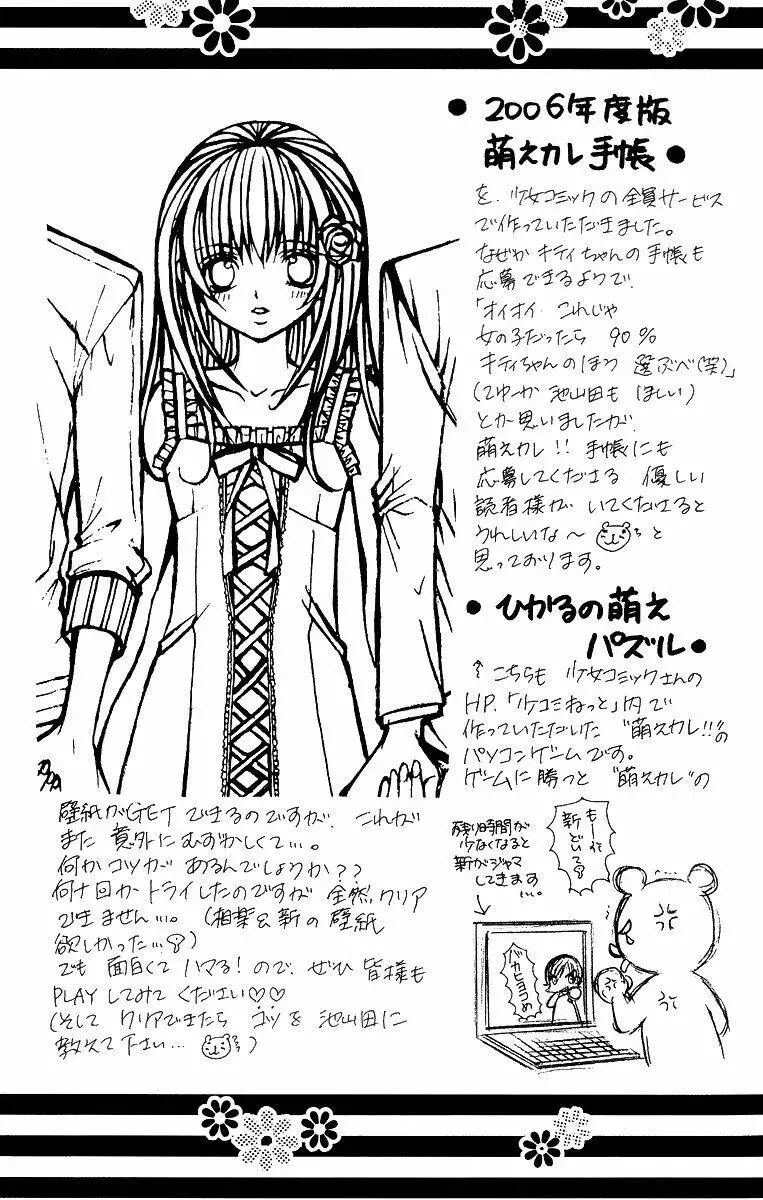 ● 2006年度版
萌えカレ手帳 ●
を、少女コミックの全員サービス
で作っていただきました。
なぜか キティちゃんの手帳も
応募できるようで、
「オイオイ これじゃ
女の子だったら 90%
キティちゃんのほう 選ぶべ(笑)」
(つゆーか 池山田も ほしい)
とか思いましたが、
萌えカレ!! 手帳にも
応募してくださる 優しい
読者様が いてくださると
うれしいな〜 と
思っております。
● ひかるの萌え
パズル ●
↑ こちらも 少女コミックさんの
HP、「少コミねっと」内で
作っていただいた "萌えカレ!!"の
パソコンゲームです。
ゲームに勝つと "萌えカレ"の
壁紙がGET できるのですが、これが
また 意外にむずかしくて…。
何かコツが あるんでしょうか??
何十回かトライしたのですが 全然クリア
できません…。(相楽&新の壁紙
欲しかった…)
でも 面白くて ハマる!ので、ぜひ 皆様も
PLAYしてみて ください♡♡
(そして クリアできたら コツを 池山田に
教えて下さい… )
残り時間が
少なくなると
新がジャマ
してきます
…。
新
どいて
バカヒヨコめ